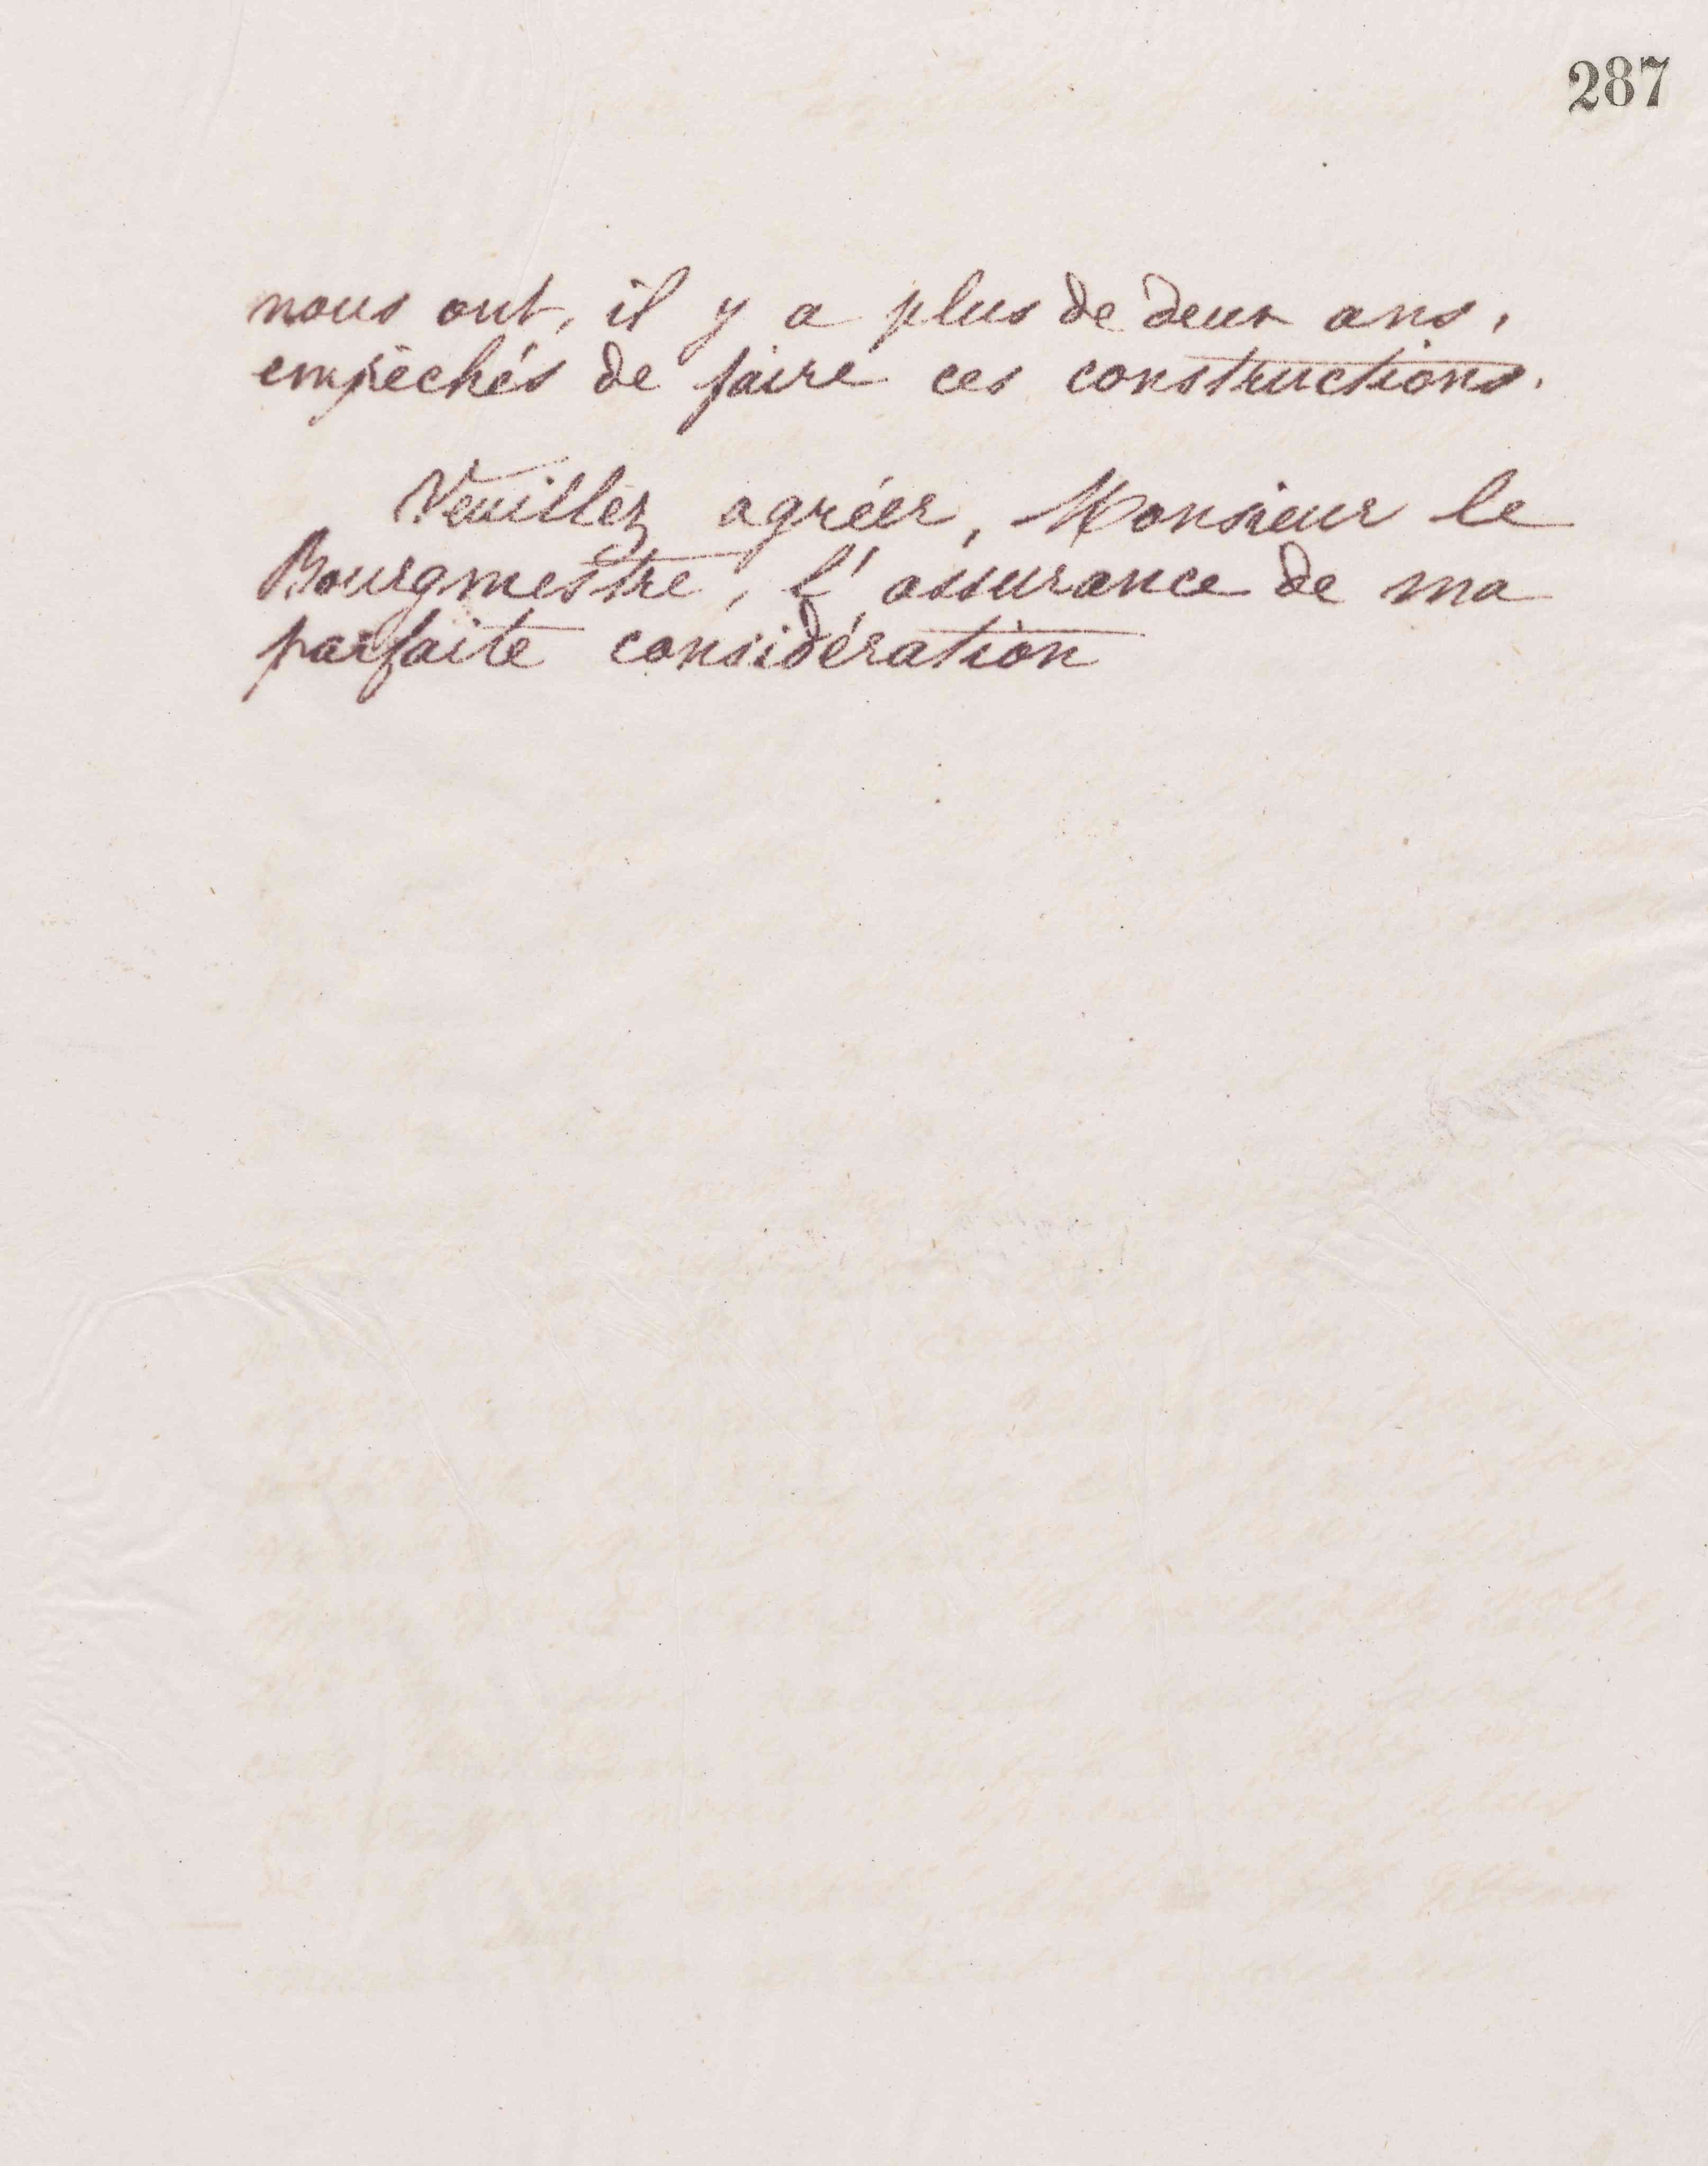 287
nous ont, il y a plus de deux ans,
empêchés de faire ces constructions.
Veuillez agréer, Monsieur le
Bourgmestre, l'assurance de ma
parfaite considération